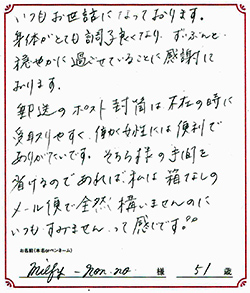 いつもお世話になっております。
身体がとても調子良くなり、ずいぶんと
穏やかに過ごせていることに感謝して
おります。
郵送のポスト封筒は不在の時に
受取りやすく、働く女性には便利で
ありがたいです。そちら様の手間を
省けるのであれば私は箱なしの
メール便で全然構いませんのに
いつもすみません…って感じです。^^
お名前(本名orペンネーム)
mify-non.no 様 51 歳